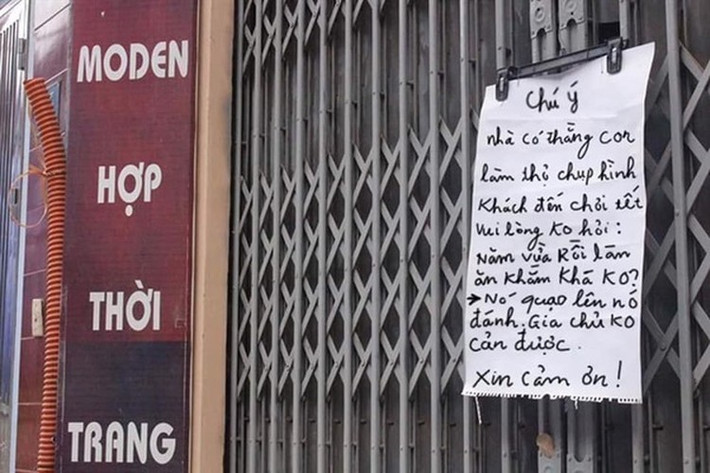 MODEN
HỢP
THỜI
TRANG
Chú ý
Nhà có thằng con
làm thợ chụp hình
Khách đến chơi tết
Vui lòng ko hỏi:
Năm vừa Rồi làm
ăn Khấm Khá KO?
→ Nó quạo lên nó
đánh. Gia chủ KO
cản được.
Xin cảm ơn!